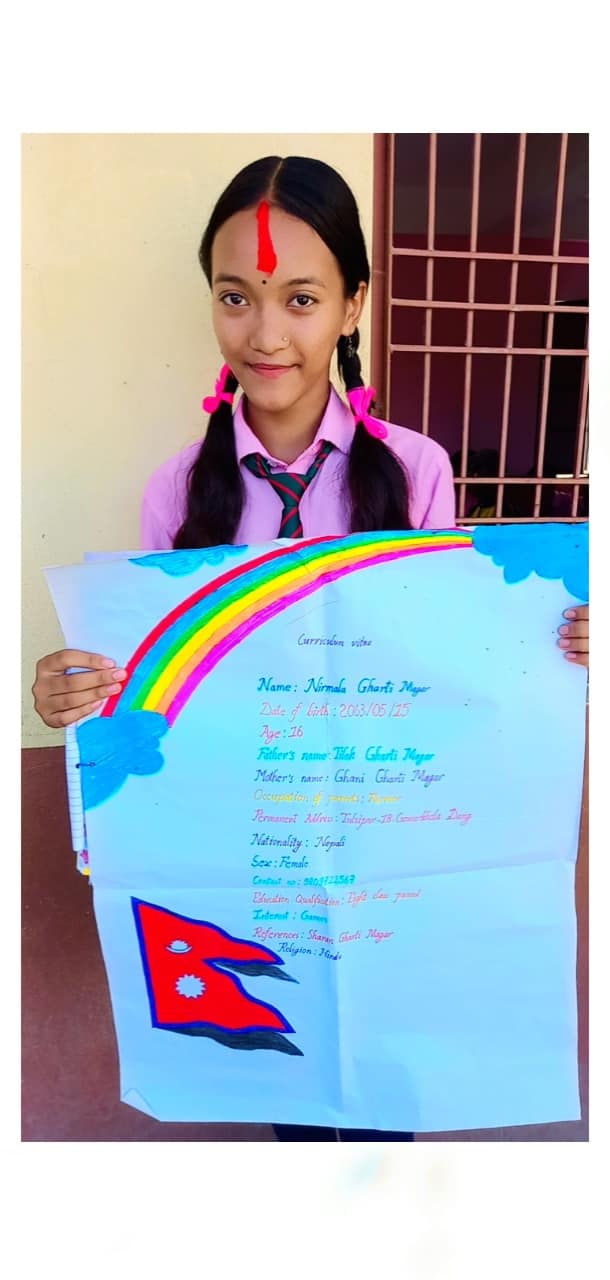 Curriculum vitae
Name: Nirmala Gharti Magar
Date of birth: 2063/05/15
Age: 16
Father's name: Gharti Magar
Mother's name: Gharti Magar
Occupation of parents: Farmer
Permanent
Nationality: Nepali
Sex: Female
Contact no:
Education Qualification: Eight class passed
Interest: Games
References: Sharan Gharti Magar
Religion: Hindu